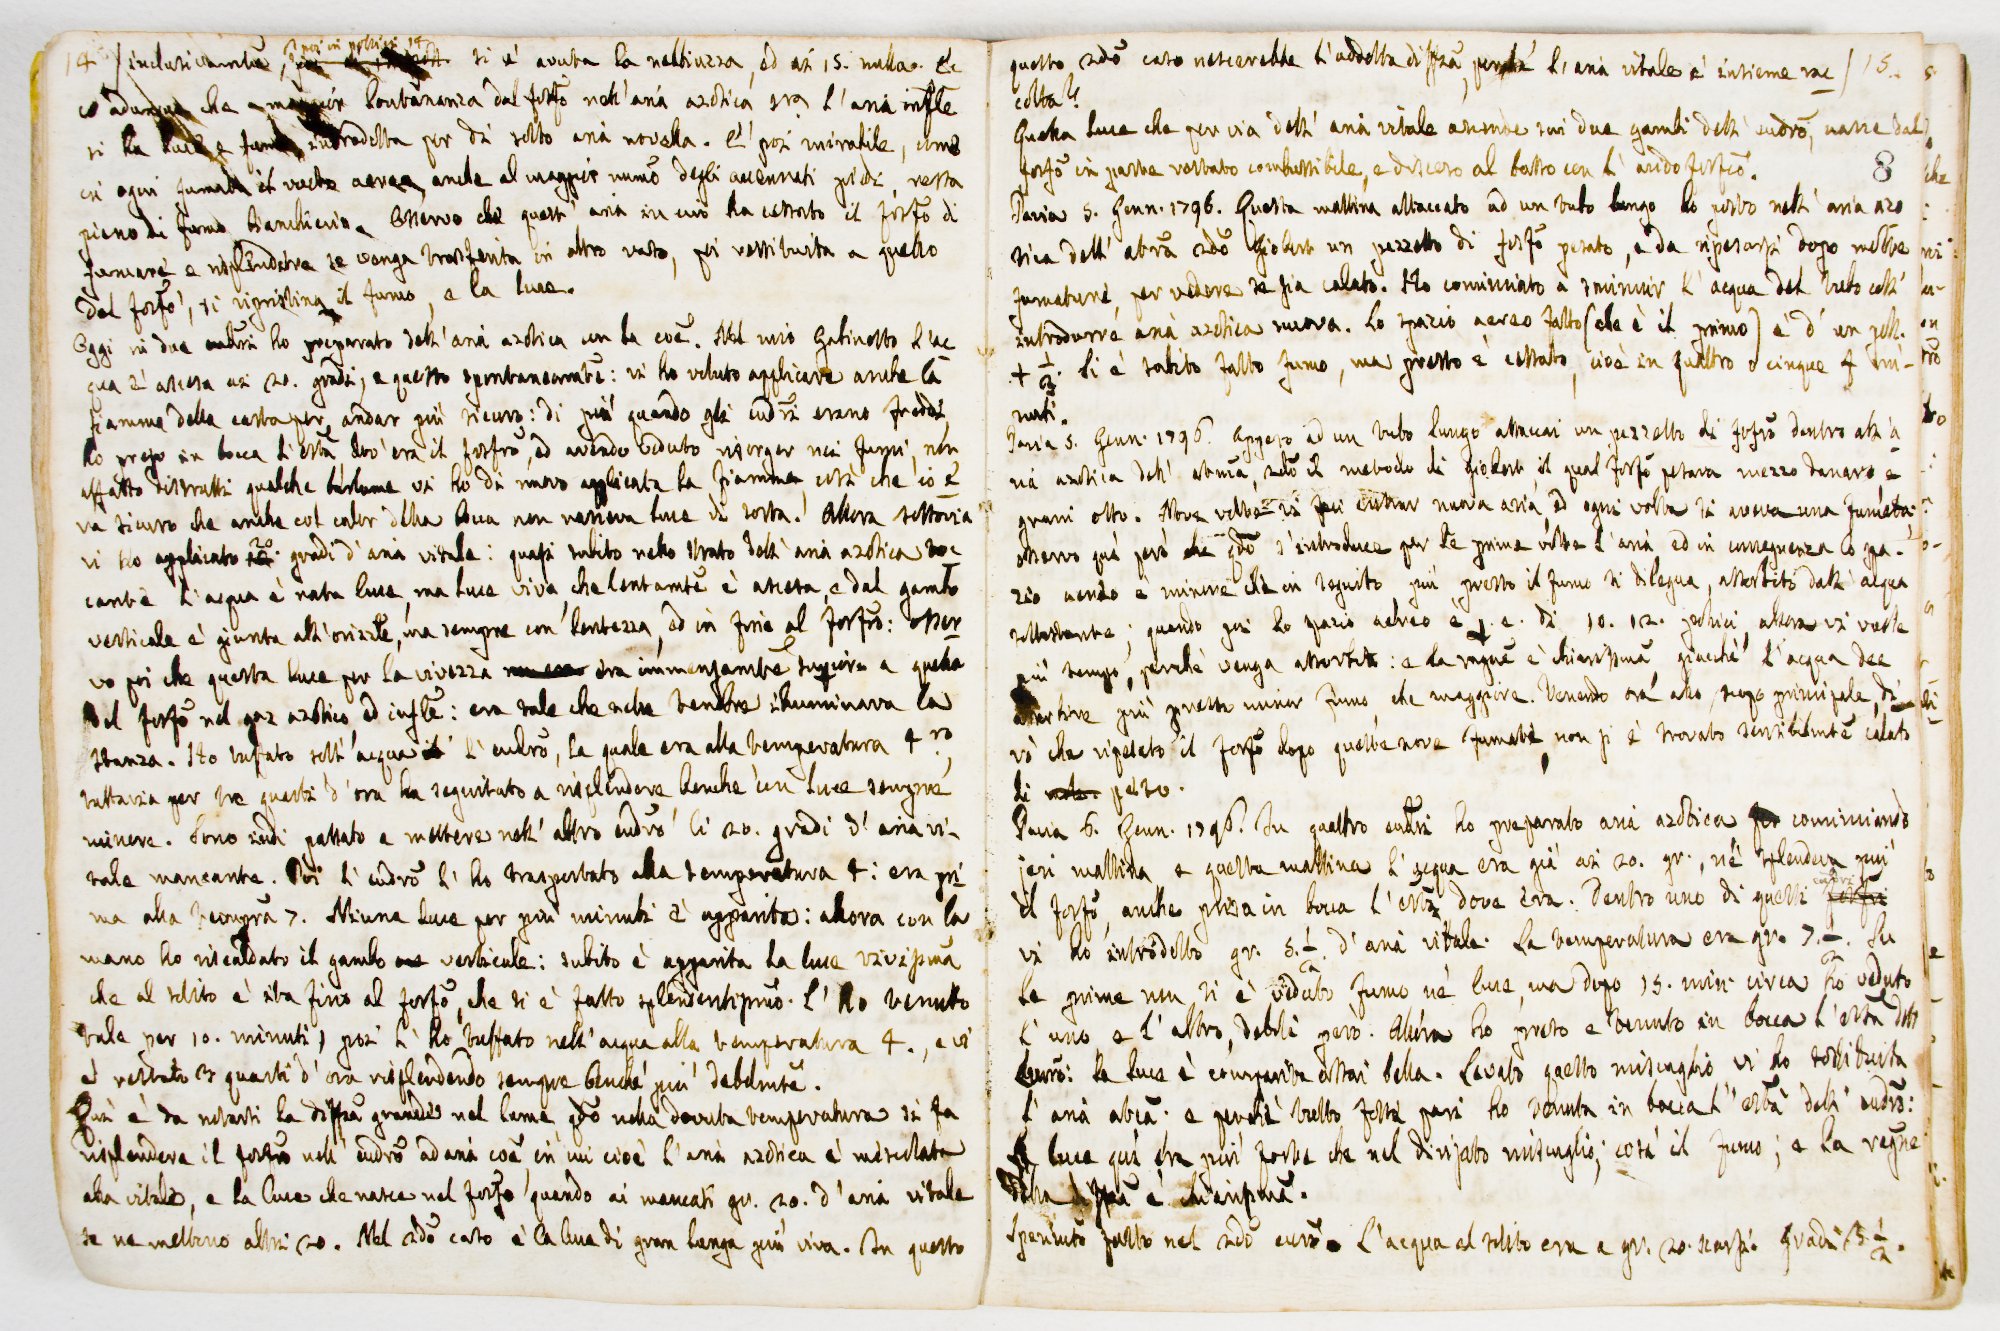 14 / inclusivamte, poi in pollici 14 si è avuta la nebbiuzza, ed ai 15. nulla. Ec
co adunque che a maggior lontananza dal fosfo nell' aria azotica sta l' aria infte
si ha luce e fumo, introdotta per di sotto aria novella. E' poi mirabile, come
ci ogni fumata il vaelto aereo, anche al maggior numo degli accennati piedi, resta
pieno di fumo bianchiccio. Osservo che quest' aria in cui ha cessato il fosfo di
fumare e risplendere se venga trasferita in altro vaso, poi restituita a quello
del fosfo, si ripristina il fumo, e la luce.
Oggi in due eudri ho preparato dell' aria azotica con la coe. Nel mio Gabinetto l' ac
qua s' è ascesa ai 20. gradi, e questo spontaneamte: vi ho voluto applicare anche la
fiamma della carta per andar più sicuro: di più quando gli eudri erano freddi,
ho preso in bocca l' estra dov' era il fosfro, ed avendo veduto risorger nei fumi, non
affatto distrutti qualche barlume vi ho di nuovo applicata la fiamma, così che io e
ra sicuro che anche col calor della bocca non nasceva luce di sorta. Allora tuttavia
vi ho applicato 20 gradi d' aria vitale: quasi subito nello strato dell' aria azotica toc
cante l' acqua è nata luce, ma luce viva, che lentamte è ascesa, e dal gambo
verticale è giunta all' orizzte, ma sempre con lentezza, ed in fine al fosfro: osser
vo poi che questa luce per la vivezza era immensambte supiore a quella
del fosfo nel gaz azotico ed infte: era tale che nelle tenebre illuminava la
stanza. Ho tuffato sott' acqua l' eudro, la quale era alla temperatura 4 ro,
tuttavia per tre quarti d' ora ha seguitato a risplendere benchè con luce sempre
minore. Sono indi passato a mettere nell' altro eudro li 20. gradi d' aria vi-
tale mancante. Poi l' eudro l' ho trasportato alla temperatura 4: era pri
ma alla tempra 7. Niuna luce per più minuti è apparita: allora con la
mano ho riscaldato il gambo verticale: subito è apparita la luce vivisma
che al solito è ita fino al fosfo, che si è fatto splendentismo. L' ho tenuto
tale per 10. minuti, poi l' ho tuffato nell' acqua alla temperatura 4., e vi
è restato 3 quarti d' ora risplendendo sempre benchè più debolmte.
Qui è da notarsi la diffza grande nel lume qdo nella dovuta temperatura si fa
risplendere il fosfro nell' eudro ad aria coe in cui cioè l' aria azotica è mescolata
alla vitale, e la luce che nasce nel fosfo quando ai mancati gr. 20. d' aria vitale
se ne mettono altri 20. Nel 2do caso è la luce di gran lunga più viva. In questo
questo 2do caso nascerebbe l' addotta diffza, perchè l' aria vitale è insieme rac / 15.
colta?
Quella luce che per via dell' aria vitale ascende sui due gambi dell' eudro, nasce dal
fosfo in parte restato combustibile, e disceso al basso con l' acido fosfco.
8
Pavia 5. Genn. 1796. Questa mattina attaccato ad un tubo lungo ho posto nell' aria azo
tica dell' atmra 2do Giobert un pezzetto di fosfo pesato, e da ripesarsi dopo molte
fumature per vedere se sia calato. Ho cominciato a sminuir l' acqua del tubo coll'
introdurre aria azotica nuova. Lo spazio aereo fatto (che è il primo) è d' un poll.
+ 1/2. Si è subito fatto fumo, ma presto è cessato, cioè in quattro o cinque mi-
nuti.
Pavia 5. Genn. 1796. Appeso ad un tubo lungo attaccai un pezzetto di fosfro dentro all' a
ria azotica dell' atmra, 2do il metodo di Giobert, il qual fosfo pesava mezzo danaro e
grani otto. Nove volte vi feci entrar nuova aria, ed ogni volta si aveva una fumata:
osservo quì però che qdo s' introduce per le prime volte l' aria, ed in conseguenza lo spa-
zio aereo è minore che in seguito, più presto il fumo si dilegua, assorbito dall' acqua
sottostante; quando poi lo spazio aereo è p. e. di 10. 12. pollici, allora vi vuole
più tempo, perchè venga assorbito: e la ragne è chiarissma, giacchè l' acqua dee
assorbire più presto minor fumo, che maggiore. Venendo ora allo scopo principale, di
rò che ripesato il fosfo dopo quelle nove fumate, non si è trovato sensibilmte calato
di peso.
Pavia 6. Genn. 1796. In quattro eudri ho preparato aria azotica cominciando
jeri mattina e questa mattina l' acqua era già ai 20. gr., nè splendeva più
il fosfo, anche presa in bocca l' estrà, dove era. Dentro uno di questi eudri
vi ho introdotto gr. 5. 1/2. d' aria vitale. La temperatura era gr. 7. 1/2. Su
le prime non si è veduto fumo nè luce, ma dopo 15. min. circa ho veduto
l' uno e l' altro, debili però. Allora ho preso e tenuto in bocca l' estrà dell'
eudro: la luce è comparita assai bella. Levato questo miscuglio vi ho sostituita
l' aria atca. e perchè tutto fosse pari ho tenuta in bocca l' estrà dell' eudro:
la luce quì era più forte che nel divisato miscuglio; così il fumo; e la ragne
della diffza è chiarissma.
Sperimto fatto nel 2do eudro. L' acqua al solito era a gr. 20. scarsi. Gradi 5. 1/2.